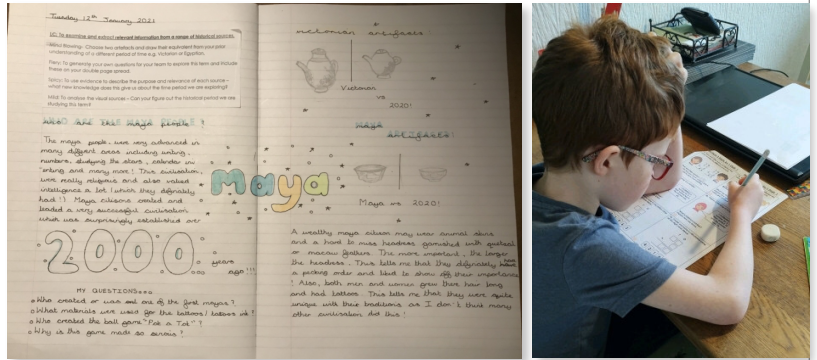 Tuesday 12th January 2021
LC: To examine and extract relevant information from a range of historical sources.
Mind Blowing- Choose two artefacts and draw their equivalent from your prior
understanding of a different period of time e.g. Victorian or Egyptian.
Fiery: To generate your own questions for your team to explore this term and include
these on your double page spread.
Spicy: To use evidence to describe the purpose and relevance of each source –
what new knowledge does this give us about the time period we are exploring?
Mild: To analyse the visual sources – Can your figure out the historical period we are
studying this term?
WHO ARE THE MAYA PEOPLE ?
The maya people were very advanced in
many different areas including writing,
numbers, studying the stars, calendar
writing and many more! This civilisation
were really religious and also valued
intelligence a lot (which they definately
had!) Maya citizens created and
leaded a very successful civilisation
which was surprisingly established over
2000 years
ago!!!
MY QUESTIONS...
Who created or was one of the first mayas?
What materials were used for the tattoos/ tattoos ink?
Who created the ball game "Pok a Tok"?
Why is this game made so serious?
Maya
Victorian artefacts!
Victorian
vs
2020!
MAYA
ARTEFACTS!
Maya vs 2020!
A wealthy maya citizen may wear animal skins
and a hard to miss headress garnished with quetzal
or macaw feathers. The more important, the larger
the headress. This tells me that they definately have
a pecking order and liked to show off their importance
! Also, both men and women grew there hair long
and had tattoos. This tells me that they were quite
unique with their traditions as I don't think many
other civilisation did this!